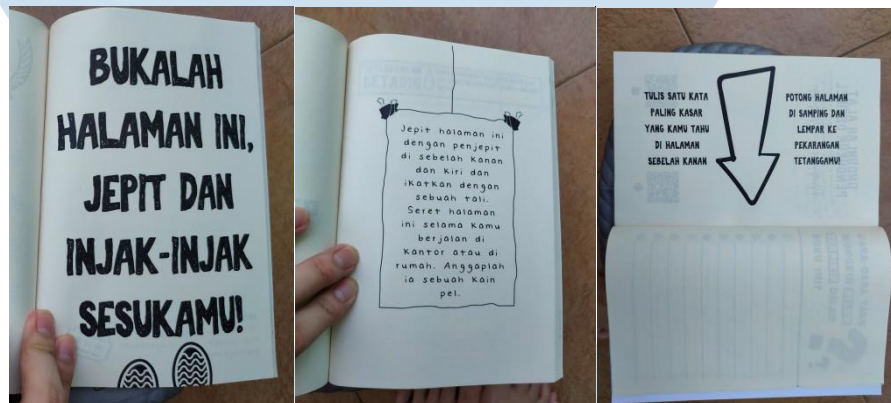 BUKALAH
HALAMAN INI,
JEPIT DAN
INJAK-INJAK
SESUKAMU!
Jepit halaman ini
dengan penjepit
di sebelah kanan
dan kiri dan
ikatkan dengan
sebuah tali.
Seret halaman
ini selama kamu
berjalan di
kantor atau di
rumah. Anggaplah
ia sebuah kain
pel.
TULIS SATU KATA
PALING KASAR
YANG KAMU TAHU
DI HALAMAN
SEBELAH KANAN
POTONG HALAMAN
DI SAMPING DAN
LEMPAR KE
PEKARANGAN
TETANGGAMU!